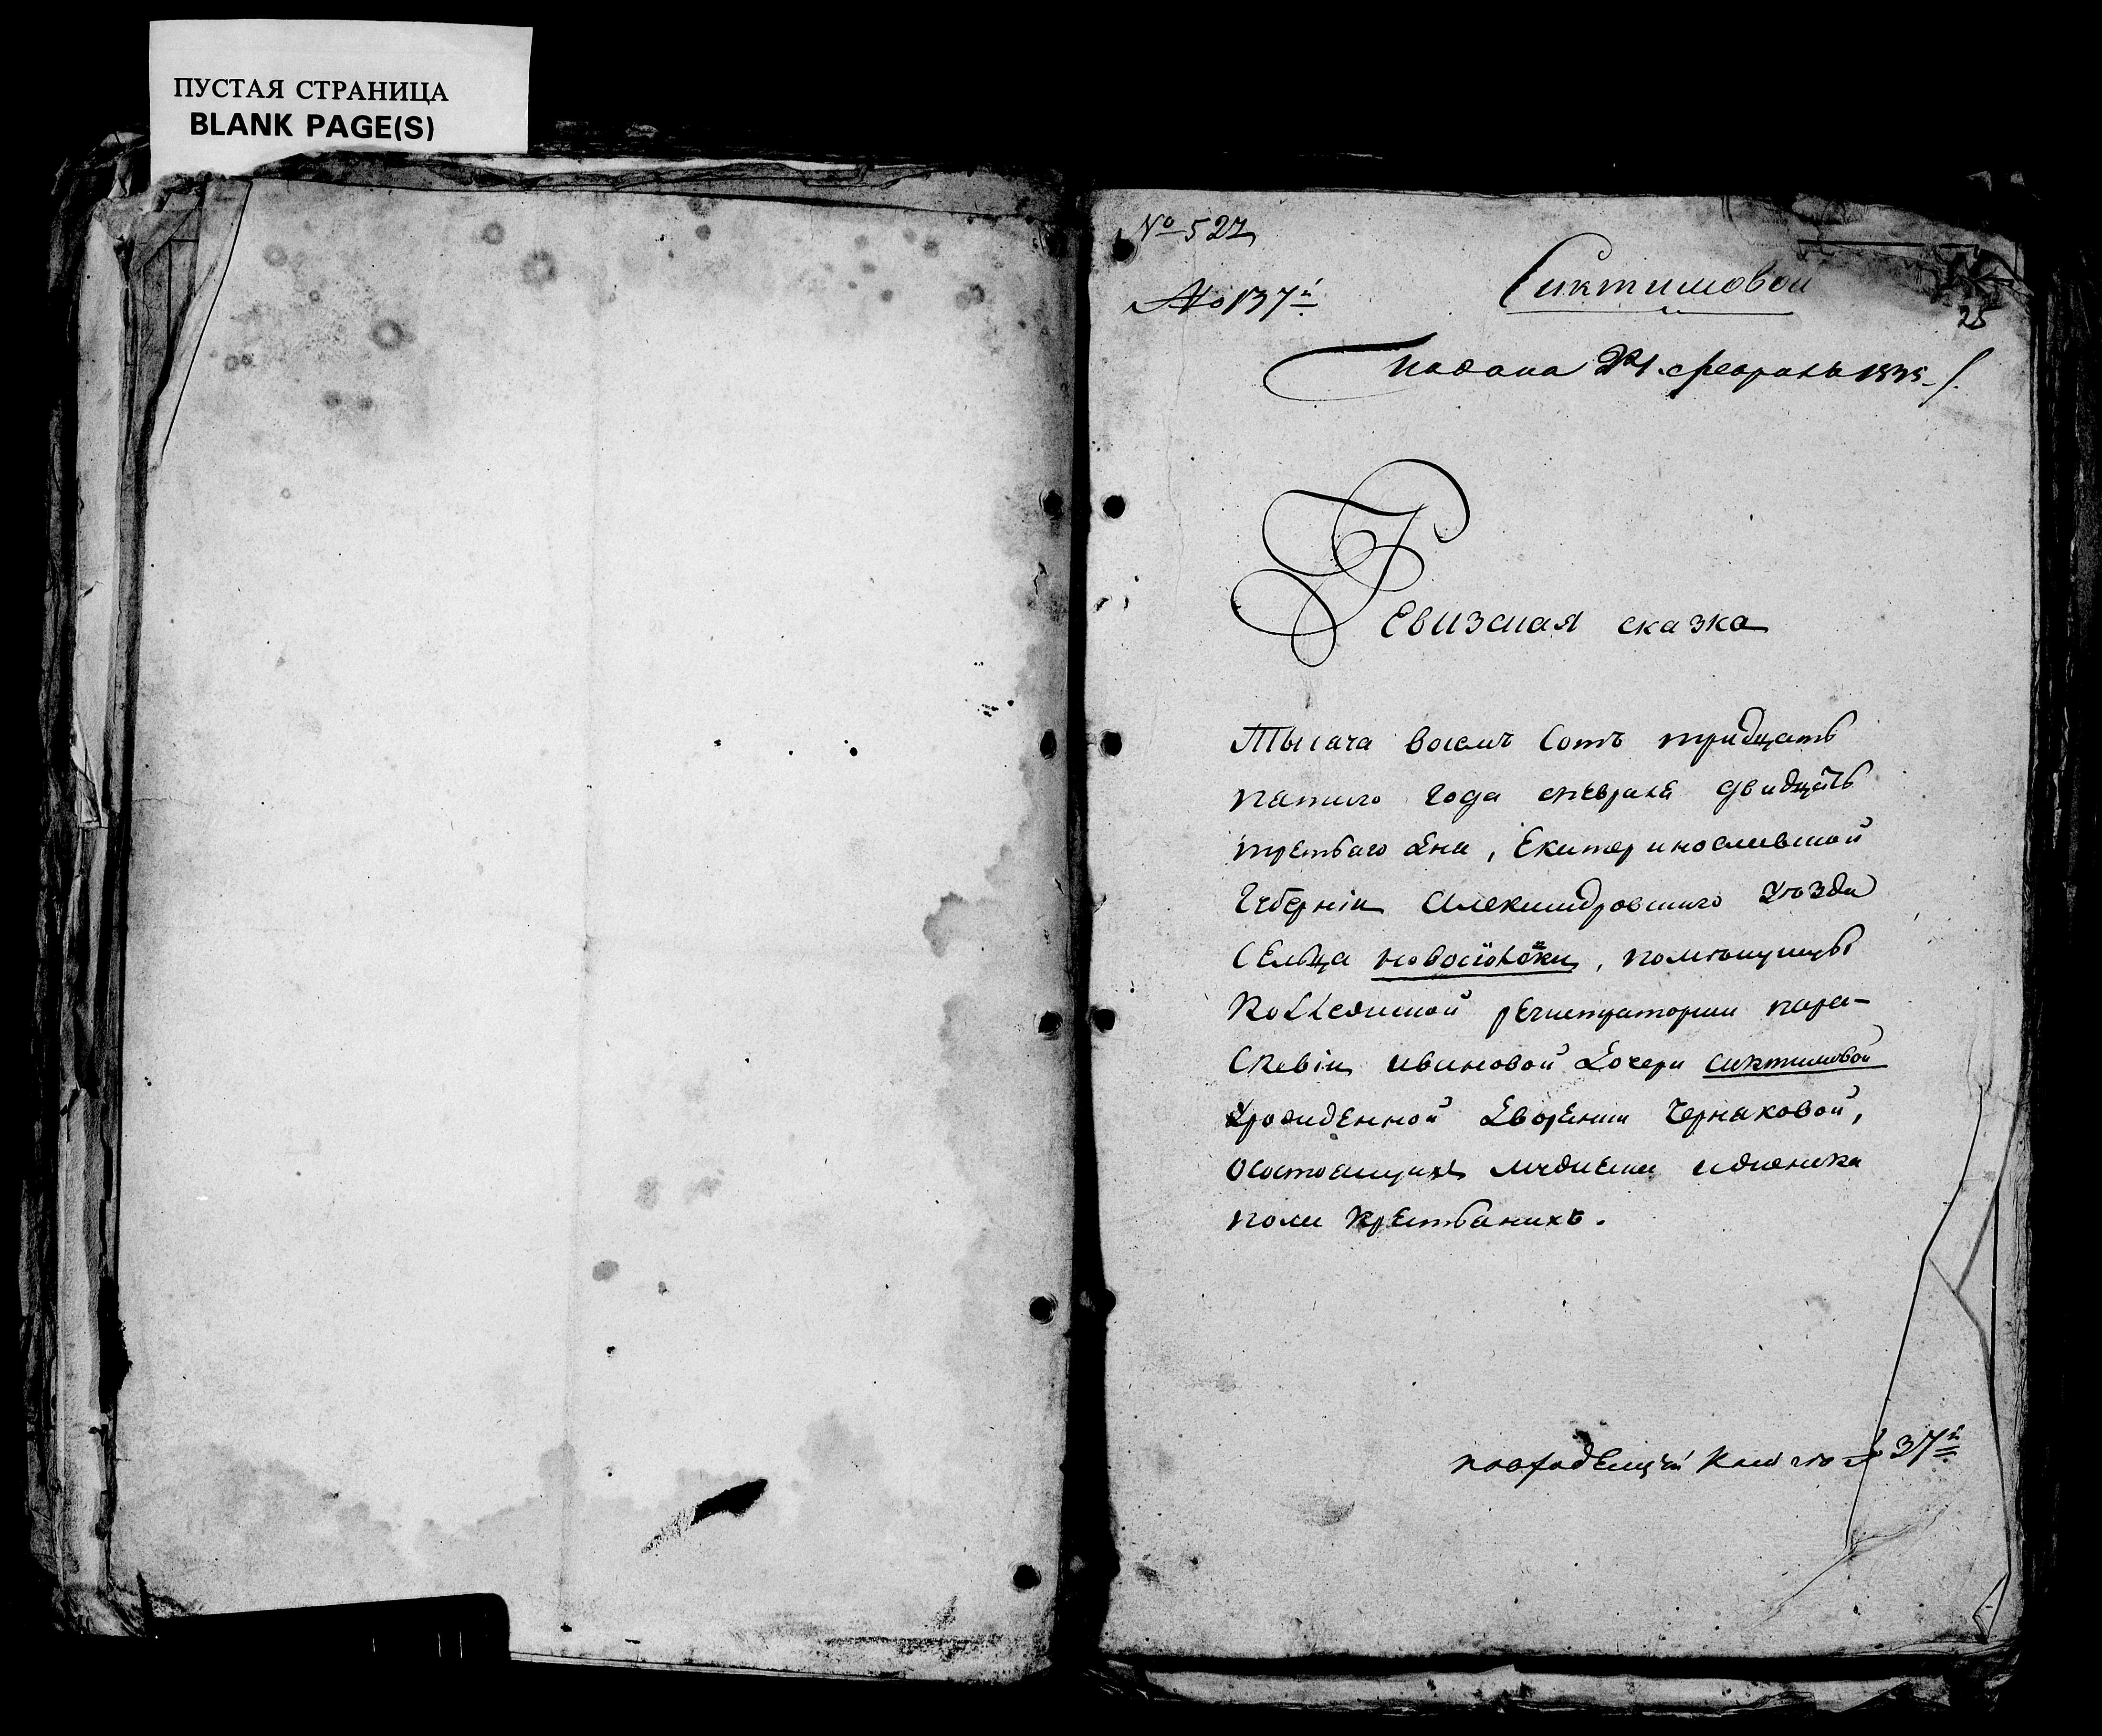 ПУСТАЯ СТРАНИЦА
BLANK PAGE(S)
№ 527
№ 137й
Сиктимовой
25
Подана 24 февраля 1835
Ревизская сказка
Тысяча восемъ Сотъ тридцать
пятого года февраля двадцать
третьяго дня, Екатеринославской
Губерніи Александровскаго уѣзда
Сельца новоселовки, помѣщицы
Коллежской регистраторши пара-
Скевіи ивановой дочери Сиктимовой
урожденной дворянки Черняковой,
о состоящихъ мужеска и женска
пола Крестьянахъ.
37й